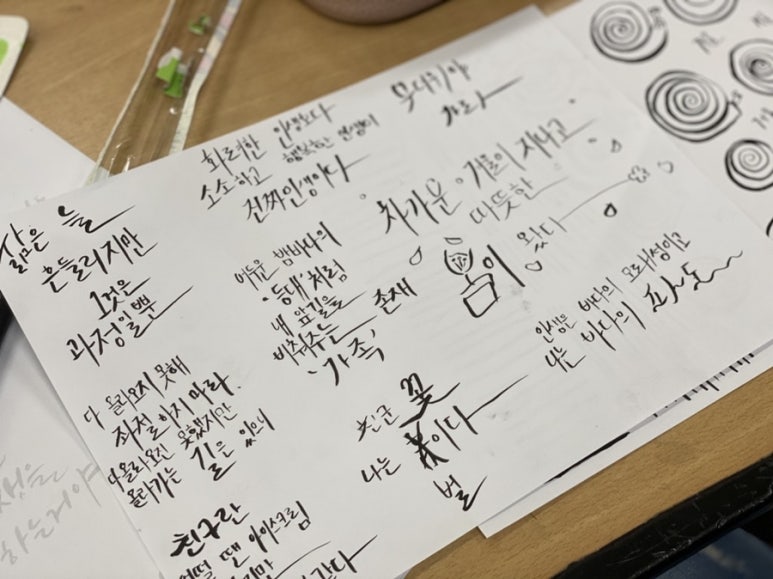 화려한 인생보다
소소하고 행복한 인생이
진짜인생이다
차가운 겨울이 지나고
따뜻한
봄이 왔다
삶은 늘
흔들리지만
그것은
과정일뿐
어두운 밤바다의
'등대'처럼
내 앞길을
비춰주는 존재
'가족'
인생은 바다의 모래성이고
나는 바다의 파도
다 올라오지 못해
좌절하지 마라.
다 올라오진 못했지만
올라가는 길은 있으니
꽃
나는 이다
벌
친구란
땐 아이스크림
간다
하는거야